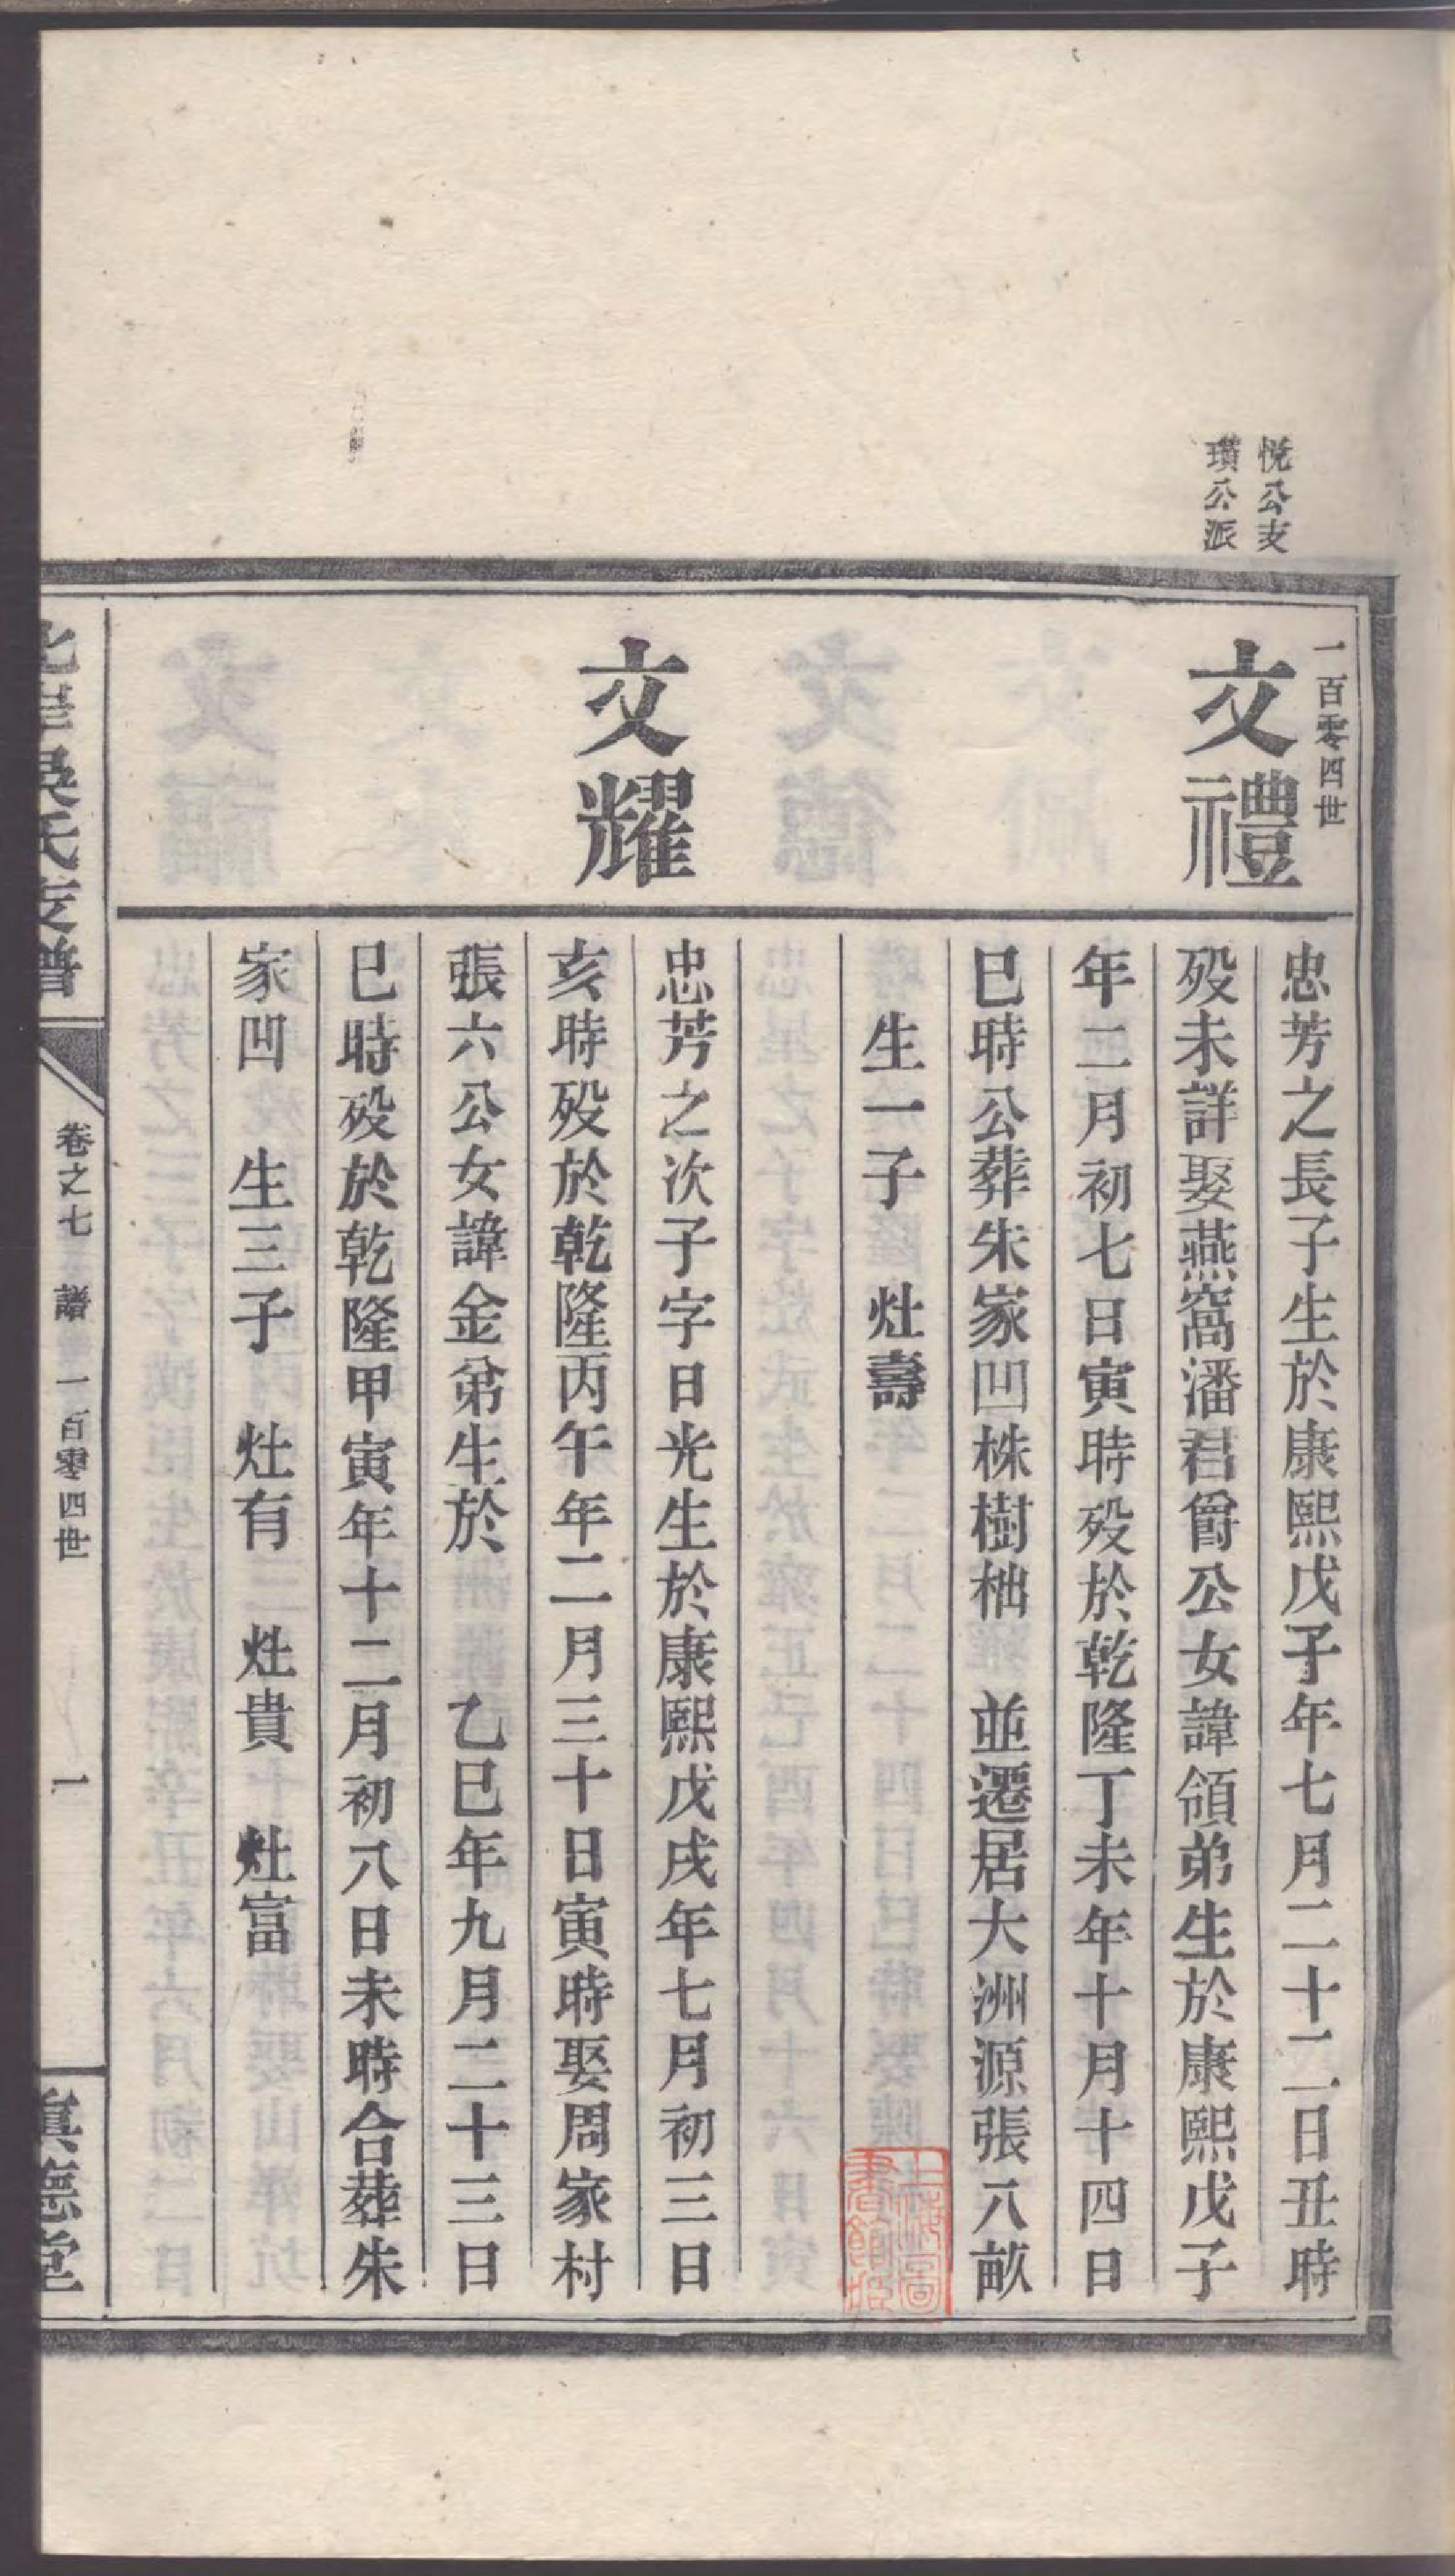 悅公支
瓚公派
一百零四世
文禮
忠芳之長子生於康熙戊子年七月二十二日丑時
殁未詳娶燕窩潘君爵公女諱領弟生於康熙戊子
年二月初七日寅時殁於乾隆丁未年十月十四日
巳時公葬朱家凹株樹柮　並遷居大洲源張八畝
生一子　灶壽
文耀
忠芳之次子字日光生於康熙戊戌年七月初三日
亥時殁於乾隆丙午年二月三十日寅時娶周家村
張六公女諱金弟生於　乙巳年九月二十三日
巳時殁於乾隆甲寅年十二月初八日未時合葬朱
家凹　生三子　灶有　灶貴　灶富
北岸吳氏支譜
卷之七　譜　一百零四世
一
眞德堂
上海圖書館